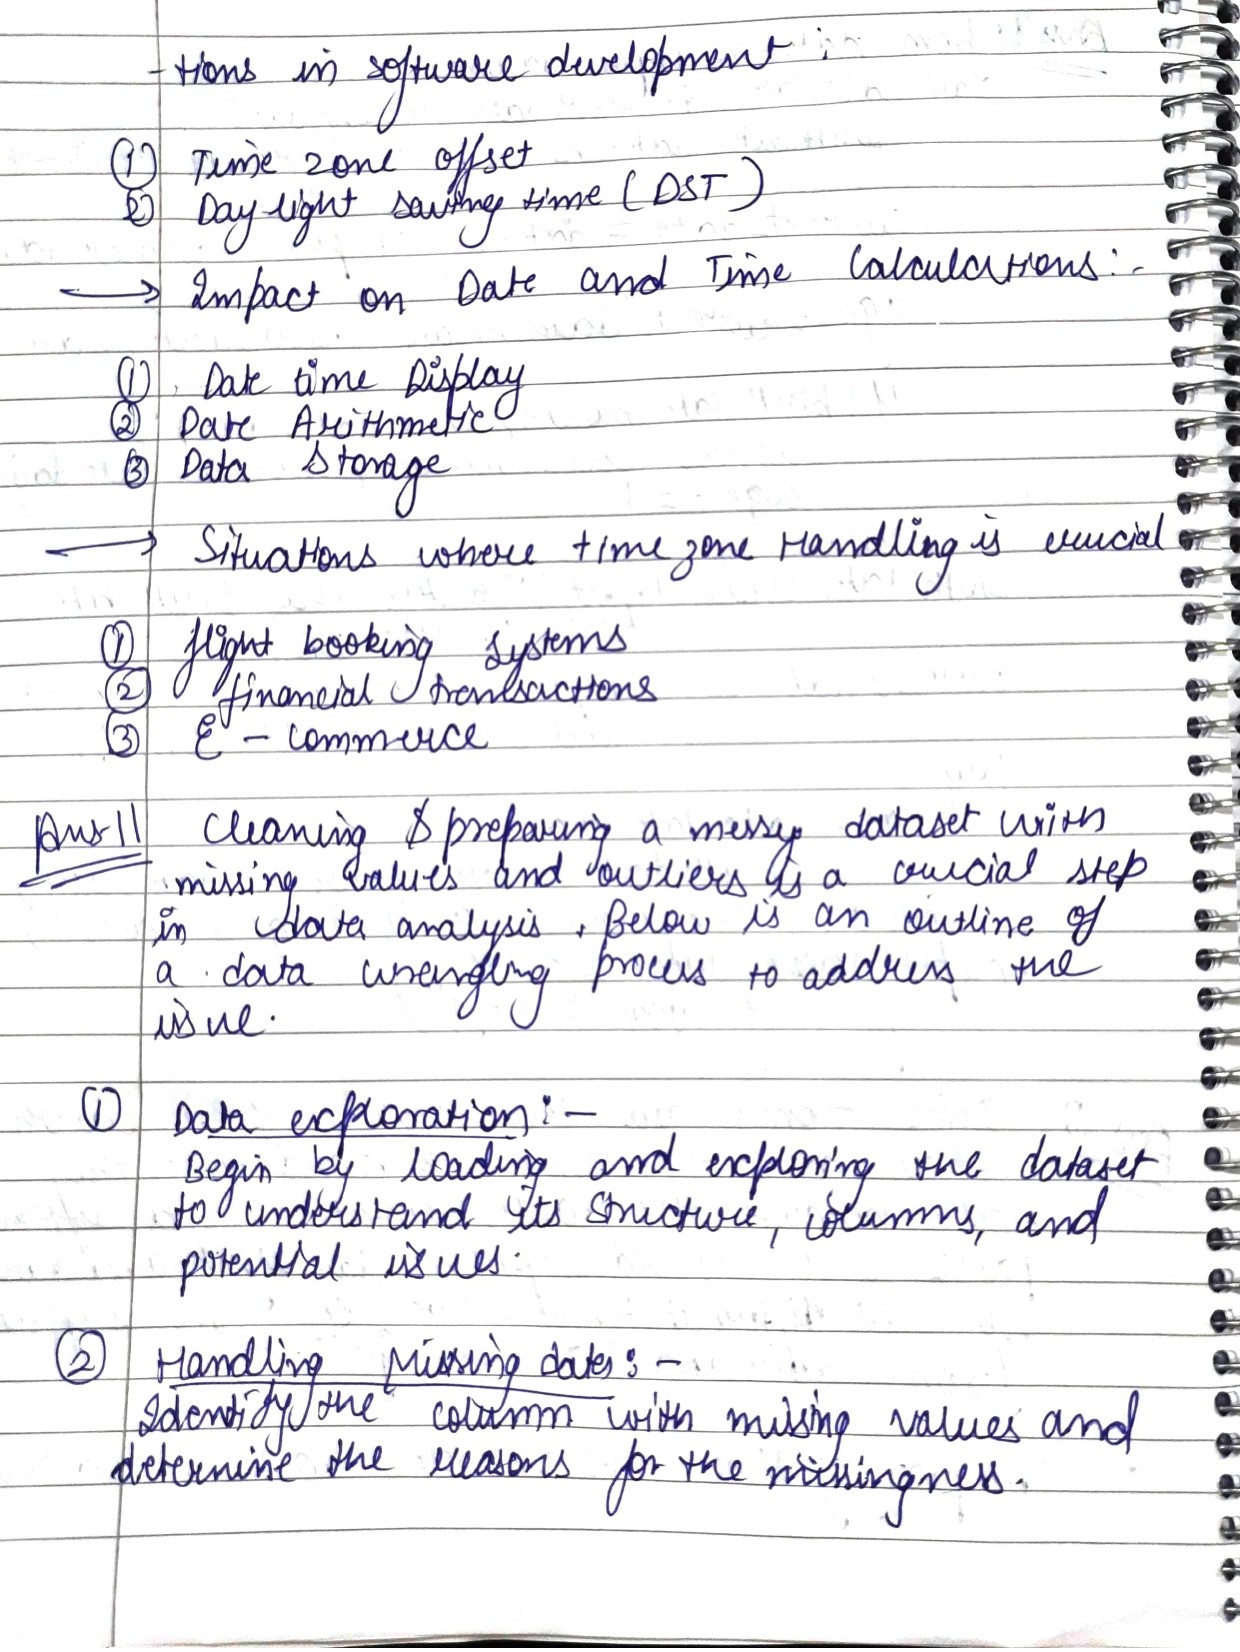 -tions in software development :
① Time zone offset
② Day light saving time (DST)
→ Impact on Date and Time Calculations:-
① Date time Display
② Date Arithmetic
③ Data Storage
→ Situations where time zone Handling is crucial
① flight booking systems
② financial transactions
③ E - commerce
Ans-11 Cleaning & preparing a messy dataset with
missing values and outliers is a crucial step
in data analysis. Below is an outline of
a data wrangling process to address the
issue.
① Data exploration:-
Begin by loading and exploring the dataset
to understand its structure, columns, and
potential issues.
② Handling Missing dates:-
Identify the column with missing values and
determine the reasons for the missingness.